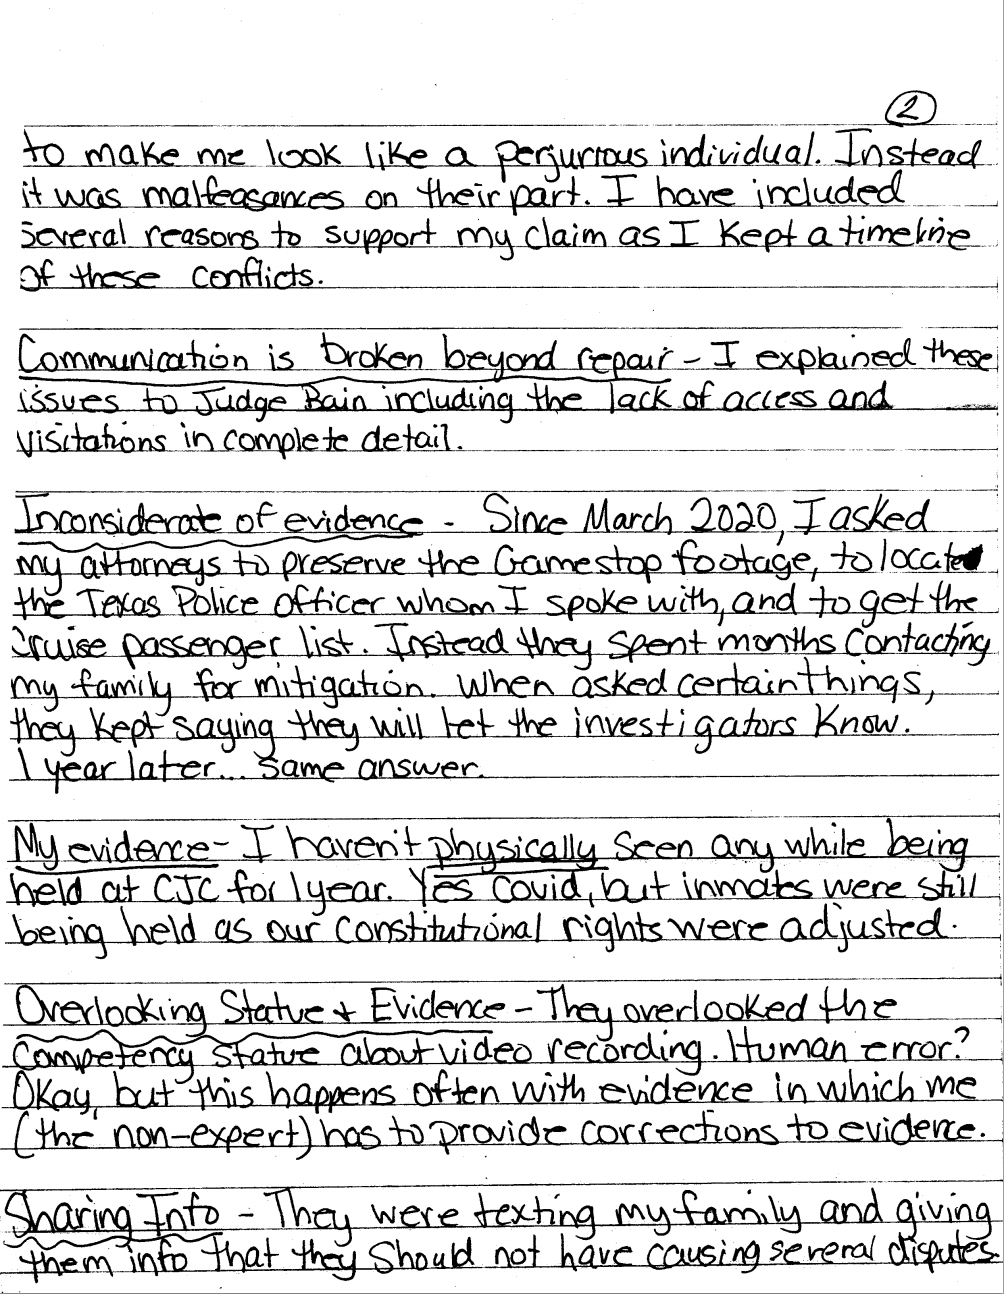 2
to make me look like a perjurrous individual. Instead
it was malfeasances on their part. I have included
several reasons to support my claim as I kept a timeline
of these conflicts.
Communication is broken beyond repair - I explained these
issues to Judge Bain including the lack of access and
visitations in complete detail.
Inconsiderate of evidence - Since March 2020, I asked
my attorneys to preserve the Gamestop footage, to locate
the Texas Police officer whom I spoke with, and to get the
cruise passenger list. Instead they spent months contacting
my family for mitigation. When asked certain things,
they kept saying they will let the investigators know.
1 year later... same answer.
My evidence - I haven't physically seen any while being
held at CJC for 1 year. Yes Covid, but inmates were still
being held as our constitutional rights were adjusted.
Overlooking Statue + Evidence - They overlooked the
competency statue about video recording. Human error?
Okay, but this happens often with evidence in which me
(the non-expert) has to provide corrections to evidence.
Sharing Info - They were texting my family and giving
them info that they should not have causing several disputes